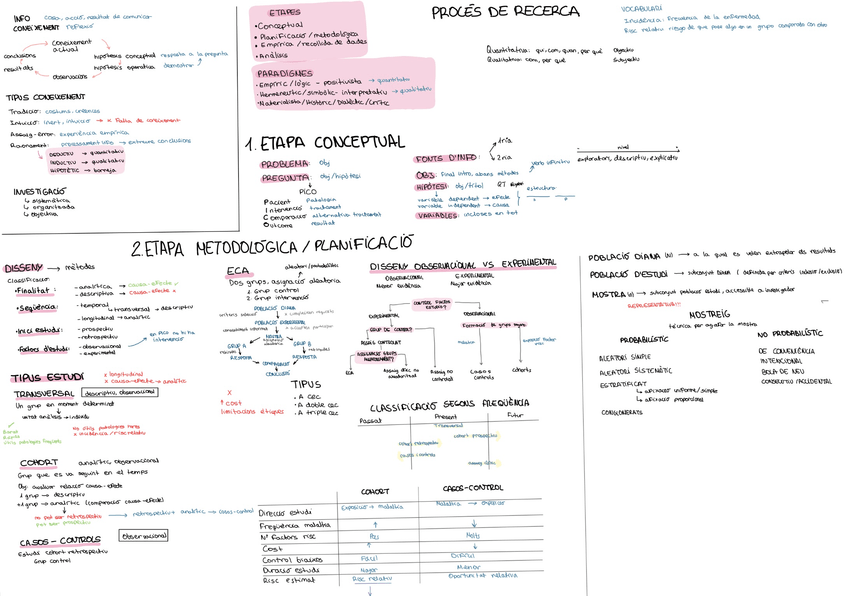 PROCÉS DE RECERCA
INFO cosa, acció, resultat de comunicar
CONEIXEMENT reflexió
Coneixement
actual
conclusions
hipòtesis conceptual resposta a la pregunta
resultats
hipòtesis operativa demostrar
observacions
TIPUS CONEIXEMENT
Tradició: costums, creències
Intuïció: inent, intuïció → x Falta de coneixement
Assaig-error: experiència empírica
Raonament:
DEDUCTIU → quantitatiu
INDUCTIU → qualitatiu
HIPOTÈTIC → barreja
INVESTIGACIÓ
↳ sistemàtica
↳ organitzada
↳ objectiva
ETAPES
• Conceptual
• Planificació / metodològica
• Empírica / recollida de dades
• Anàlisis
PARADIGMES
• Empíric/lògic - positivista → quantitatiu
• Hermenèutic/simbòlic - interpretatiu → qualitatiu
• Materialista/Històric/Dialèctic/Crític
VOCABULARI
Incidència: frecuencia de la enfermedad
Risc relatiu: riesgo de que pase algo en un grupo comparado con otro
Quantitativa: qui, com, quan, per què Objectiu
Qualitativa: com, per què Subjectiu
1. ETAPA CONCEPTUAL
PROBLEMA: Obj
PREGUNTA: obj/hipòtesi
PICO
Pacient Patología
Intervenció tractament
Comparació alternativa tractament
Outcome resultat
FONTS D'INFO:
1ria
2ria
OBJ: Final intro, abans mètodes
verb infinitiu
nivel
exploratori, descriptiu, explicatiu
HIPÒTESI: obj/títol
estructura
variable dependent → efecte
variable independent → causa
VARIABLES: incloses en tot
2. ETAPA METODOLÒGICA / PLANIFICACIÓ
DISSENY → mètodes
Classificació
• Finalitat:
- analítica → causa-efecte ✓
- descriptiva → causa-efecte x
• Seqüència:
- temporal
↳ transversal → descriptiva
- longitudinal → analític
• Inici estudi:
- prospectiu
- retrospectiu
• Factors d'estudi:
- observacional
- experimental
en PICO no hi ha
intervenció
TIPUS ESTUDI
x longitudinal
x causa-efecte → analític
TRANSVERSAL descriptiu observacional
Un grup en moment determinat
Barat
no útils patologies rares
x incidència / risc relatiu
COHORT analític observacional
Grup que es va seguint en el temps
Obj: avaluar relació causa-efecte
1 grup → descriptiu
+1 grup → analític (comparació causa-efecte)
no pot ser retrospectiu → retrospectiu + analític → casos-control
pot ser prospectiu
CASOS - CONTROLS Observacional
Estudi cohort retrospectiu
Grup control
ECA
Dos grups, asignació aleatoria
1. Grup control
2. Grup intervenció
POBLACIÓ DIANA
POBLACIÓ EXPERIMENTAL
MOSTRA
GRUP A
GRUP B
RESPOSTA
RESPOSTA
COMPARACIÓ
CONCLUSIÓ
x
↑ cost
limitacions ètiques
TIPUS
. A cec
. A doble cec
. A triple cec
DISSENY OBSERVACIONAL VS EXPERIMENTAL
OBSERVACIONAL
Menor evidència
EXPERIMENTAL
Major evidència
CONTROL FACTOR
ESTUDI?
EXPERIMENTAL
OBSERVACIONAL
GRUP DE CONTROL?
Formació de grups segons
ASSAIG CONTROLAT
ASSIGNACIÓ GRUPS
ALEATÒRIAMENT?
ECA
Assaig clínic no
aleatoritzat
Assaig no
controlat
Casos i
controls
cohorts
CLASSIFICACIÓ SEGONS FREQÜÈNCIA
Passat Present Futur
Transversal
cohort retrospectiu
cohort prospectiu
casos i controls
assaig clínic
COHORT CASOS-CONTROL
Direcció estudi Exposició → malaltia Malaltia → exposició
Freqüència malaltia ↑ ↓
Nº Factors risc Pocs Molts
Cost ↑ ↓
Control biaixos Fàcil Difícil
Duració estudi Major Menor
Risc estimat Risc relatiu Oportunitat relativa
POBLACIÓ DIANA (N) → a la qual es volen extrapolar els resultats
POBLACIÓ D'ESTUDI → subconjunt diana (definida per criteris inclusió/exclusió)
MOSTRA (n) → subconjunt població estudi, accessible a investigador
REPRESENTATIVA!!!
MOSTREIG
tècnica per agafar la mostra
PROBABILÍSTIC
NO PROBABILÍSTIC
ALEATORI SIMPLE
ALEATORI SISTEMÀTIC
ESTRATIFICAT
↳ afixació uniforme/simple
↳ afixació proporcional
CONGLOMERATS
DE CONVENIÈNCIA
INTENCIONAL
BOLA DE NEU
CONSECUTIU / ACCIDENTAL